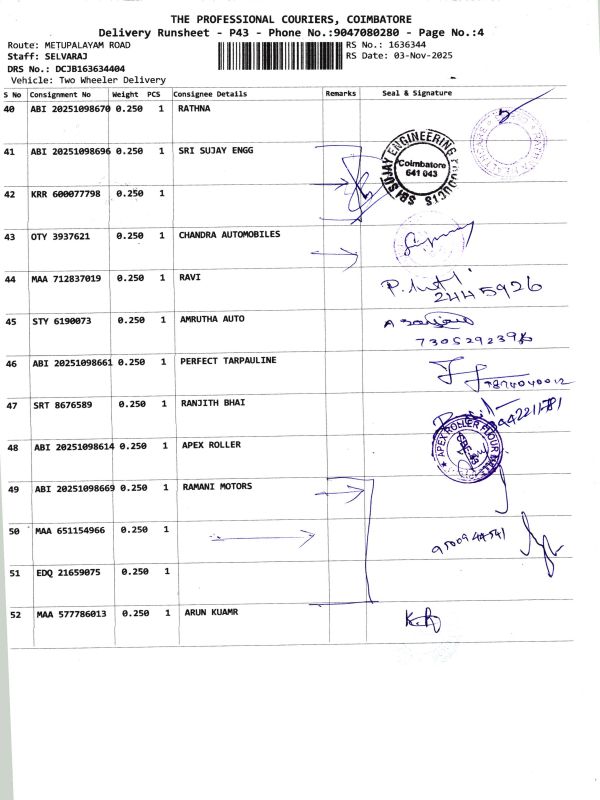 THE PROFESSIONAL COURIERS, COIMBATORE
Delivery Runsheet - P43 - Phone No.:9047080280 - Page No.:4
Route: METUPALAYAM ROAD RS No.: 1636344
Staff: SELVARAJ RS Date: 03-Nov-2025
DRS No.: DCJB163634404
Vehicle: Two Wheeler Delivery
S No Consignment No Weight PCS Consignee Details Remarks Seal & Signature
40 ABI 20251098670 0.250 1 RATHNA
41 ABI 20251098696 0.250 1 SRI SUJAY ENGG
SRI SUJAY ENGINEERING PRODUCTS
Coimbatore
641 043
42 KRR 600077798 0.250 1
43 OTY 3937621 0.250 1 CHANDRA AUTOMOBILES
44 MAA 712837019 0.250 1 RAVI
2445926
45 STY 6190073 0.250 1 AMRUTHA AUTO
46 ABI 20251098661 0.250 1 PERFECT TARPAULINE
47 SRT 8676589 0.250 1 RANJITH BHAI
48 ABI 20251098614 0.250 1 APEX ROLLER
APEX ROLLER FLOUR
49 ABI 20251098669 0.250 1 RAMANI MOTORS
50 MAA 651154966 0.250 1
51 EDQ 21659075 0.250 1
52 MAA 577786013 0.250 1 ARUN KUAMR